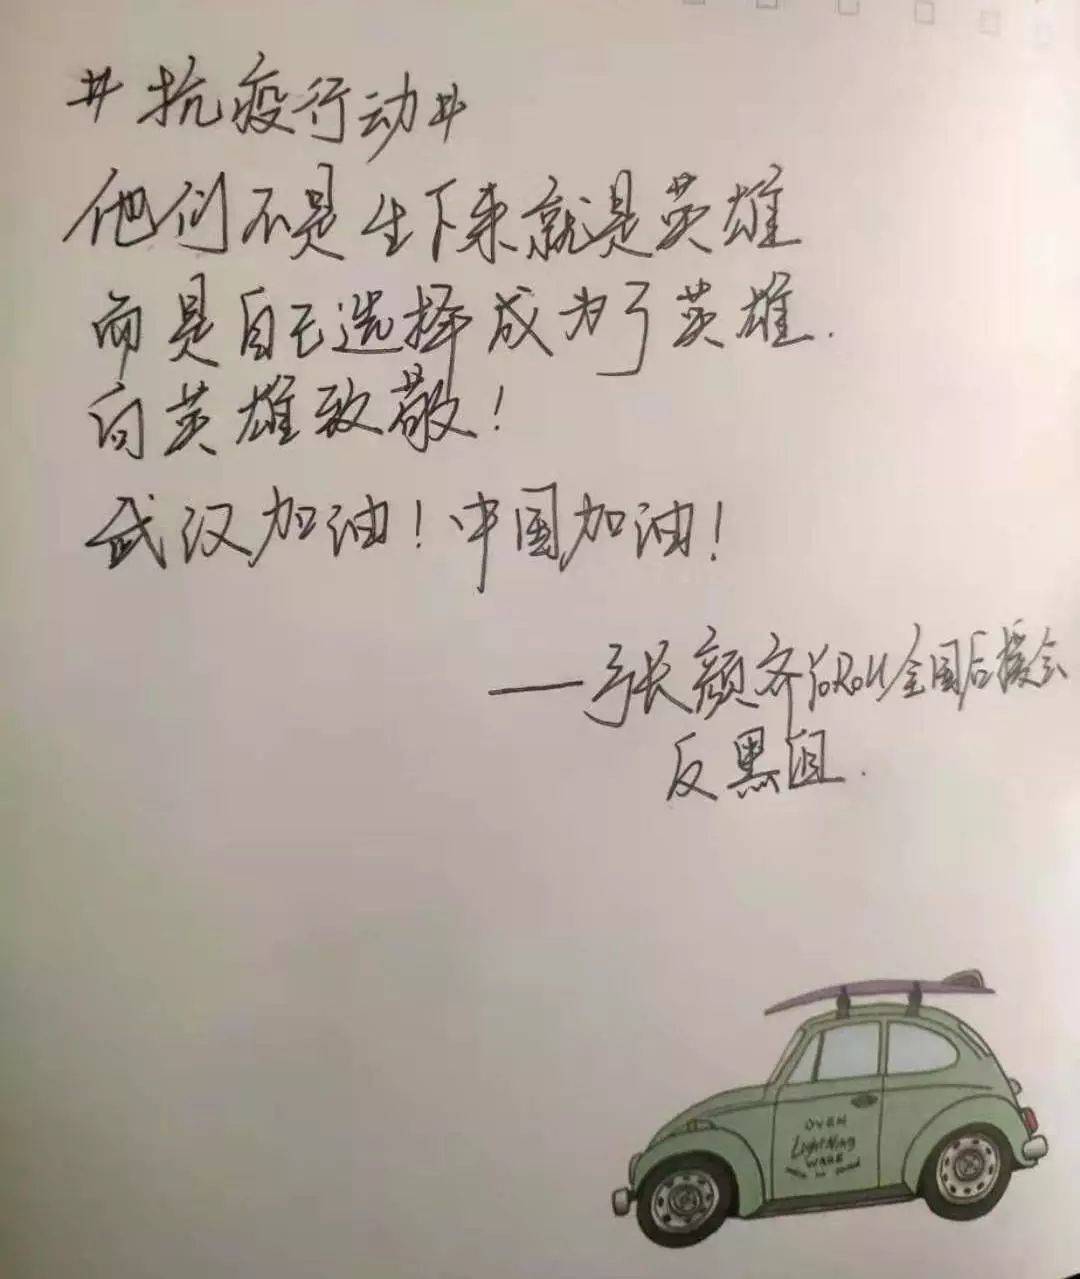 #抗疫行动#
他们不是生下来就是英雄
而是自己选择成为了英雄.
向英雄致敬!
武汉加油!中国加油!
——张颜齐YoRoll全国后援会
反黑组.
OVEN
LIGHTNING
WARE